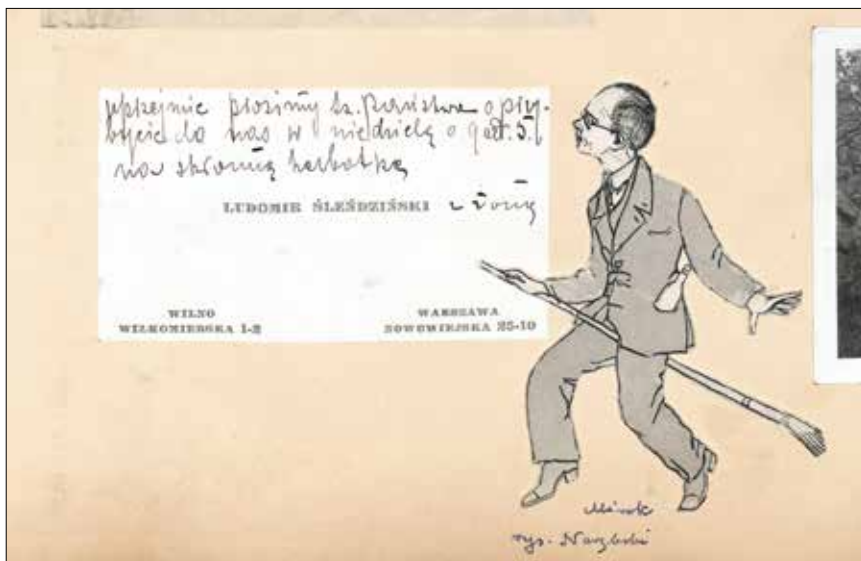 uprzejmie prosimy Sz. Państwa o przy-
bycie do nas w niedzielę o godz. 5.
na skromną herbatkę
LUDOMIR ŚLEŃDZIŃSKI z żoną
WILNO
WIŁKOMIERSKA 1-2
WARSZAWA
NOWOMIEJSKA 25-10
rys.